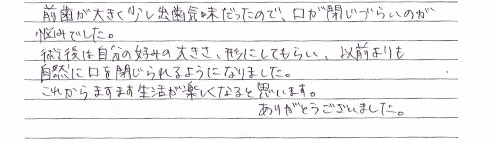 前歯が大きく少し出歯気味だったので、口が閉じづらいのが
悩みでした。
術後は自分の好みの大きさ、形にしてもらい、以前よりも
自然に口を閉じられるようになりました。
これからますます生活が楽しくなると思います。
ありがとうございました。